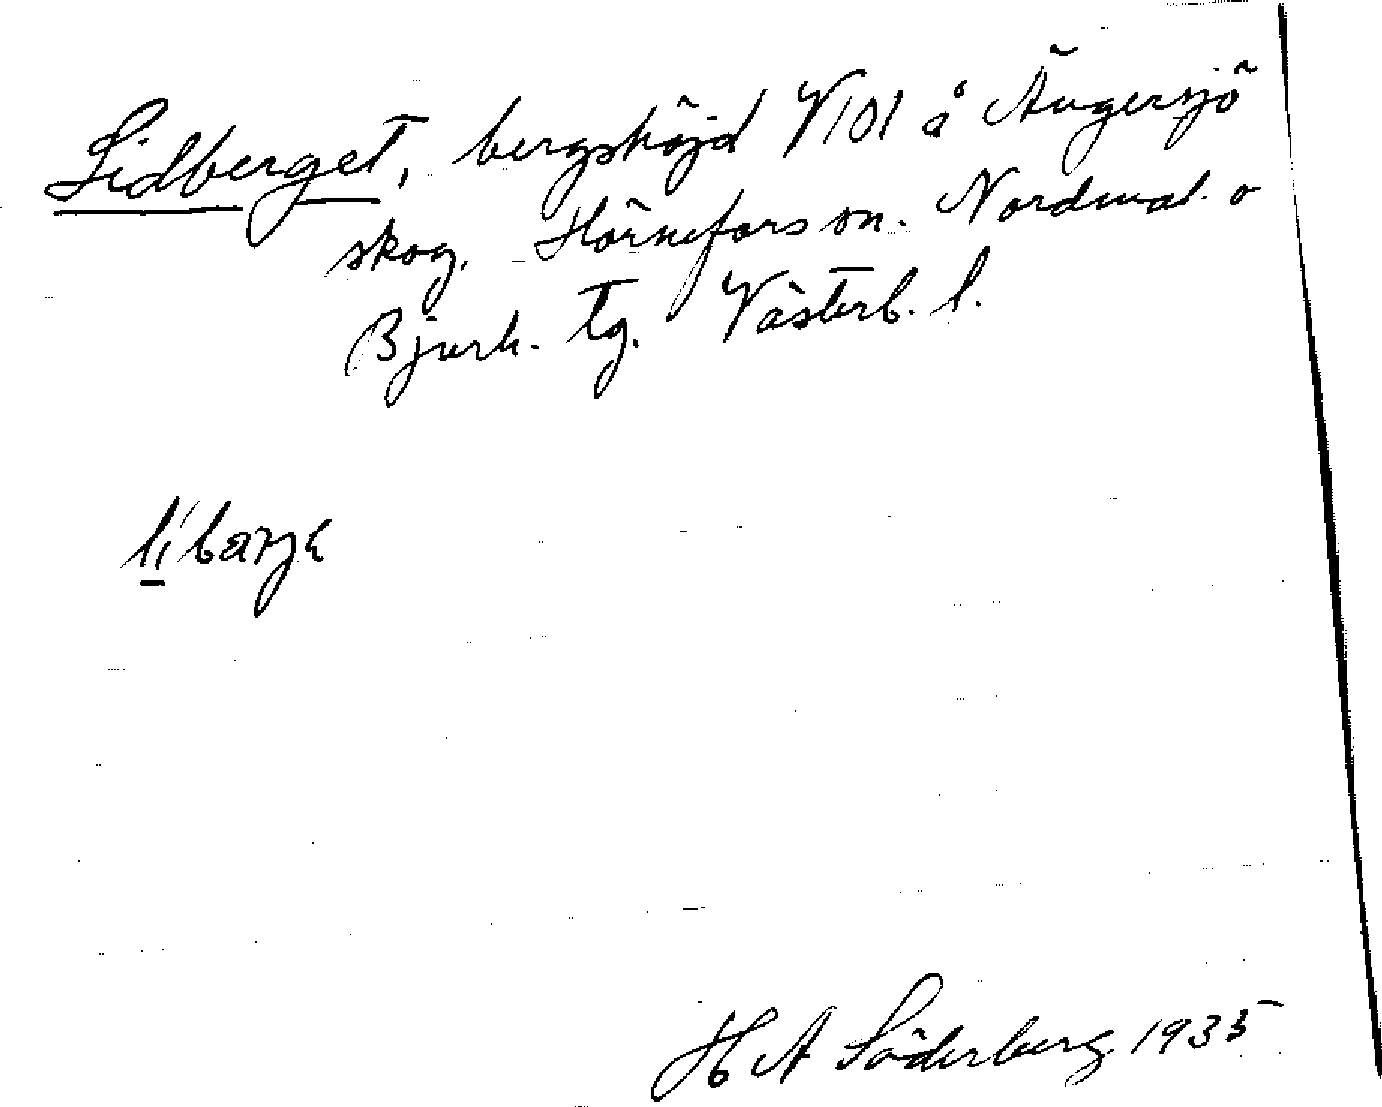 Lidberget, bergshöjd V 101 å Ängersjö
skog. Hörnefors sn. Nordmal. o
Bjurh. tg. Västerb. l.
H A Söderberg 1935